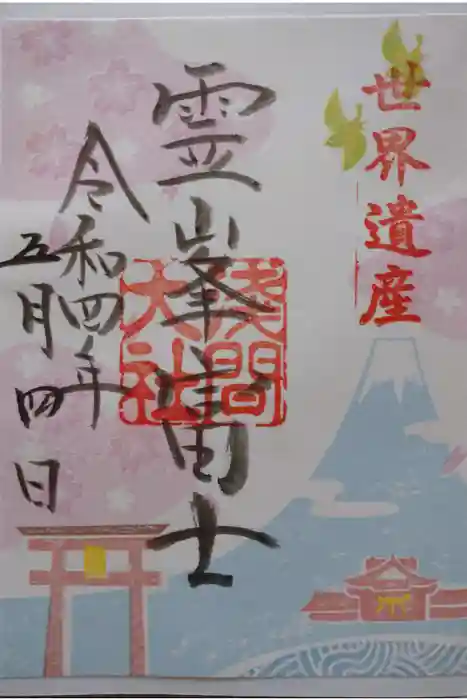 世界遺産
霊峰富士
浅間
大社
令和四年
五月四日